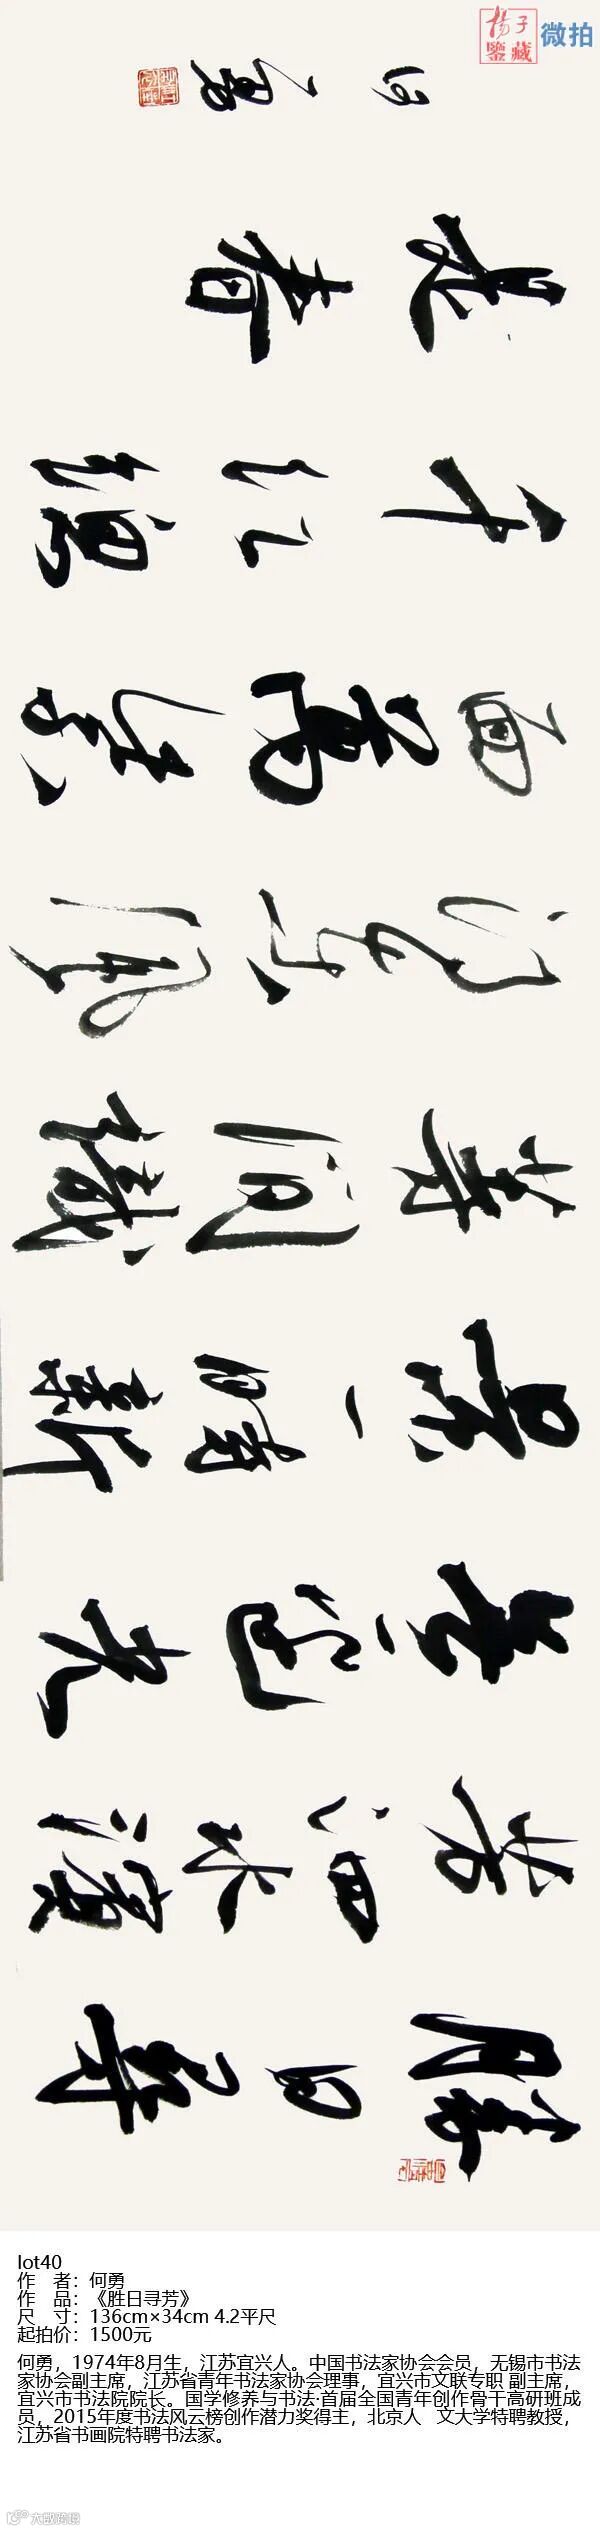 揚子
鑒藏
微拍
勝日尋
芳泗水濱
無邊光
景一時新
等閒識
得東風
面萬紫
千紅總
是春
何勇
lot40
作 者：何勇
作 品：《胜日寻芳》
尺 寸：136cm×34cm 4.2平尺
起拍价：1500元
何勇，1974年8月生，江苏宜兴人。中国书法家协会会员，无锡市书法
家协会副主席，江苏省青年书法家协会理事，宜兴市文联专职 副主席，
宜兴市书法院院长。国学修养与书法·首届全国青年创作骨干高研班成
员，2015年度书法风云榜创作潜力奖得主，北京人 文大学特聘教授，
江苏省书画院特聘书法家。
大数跨境